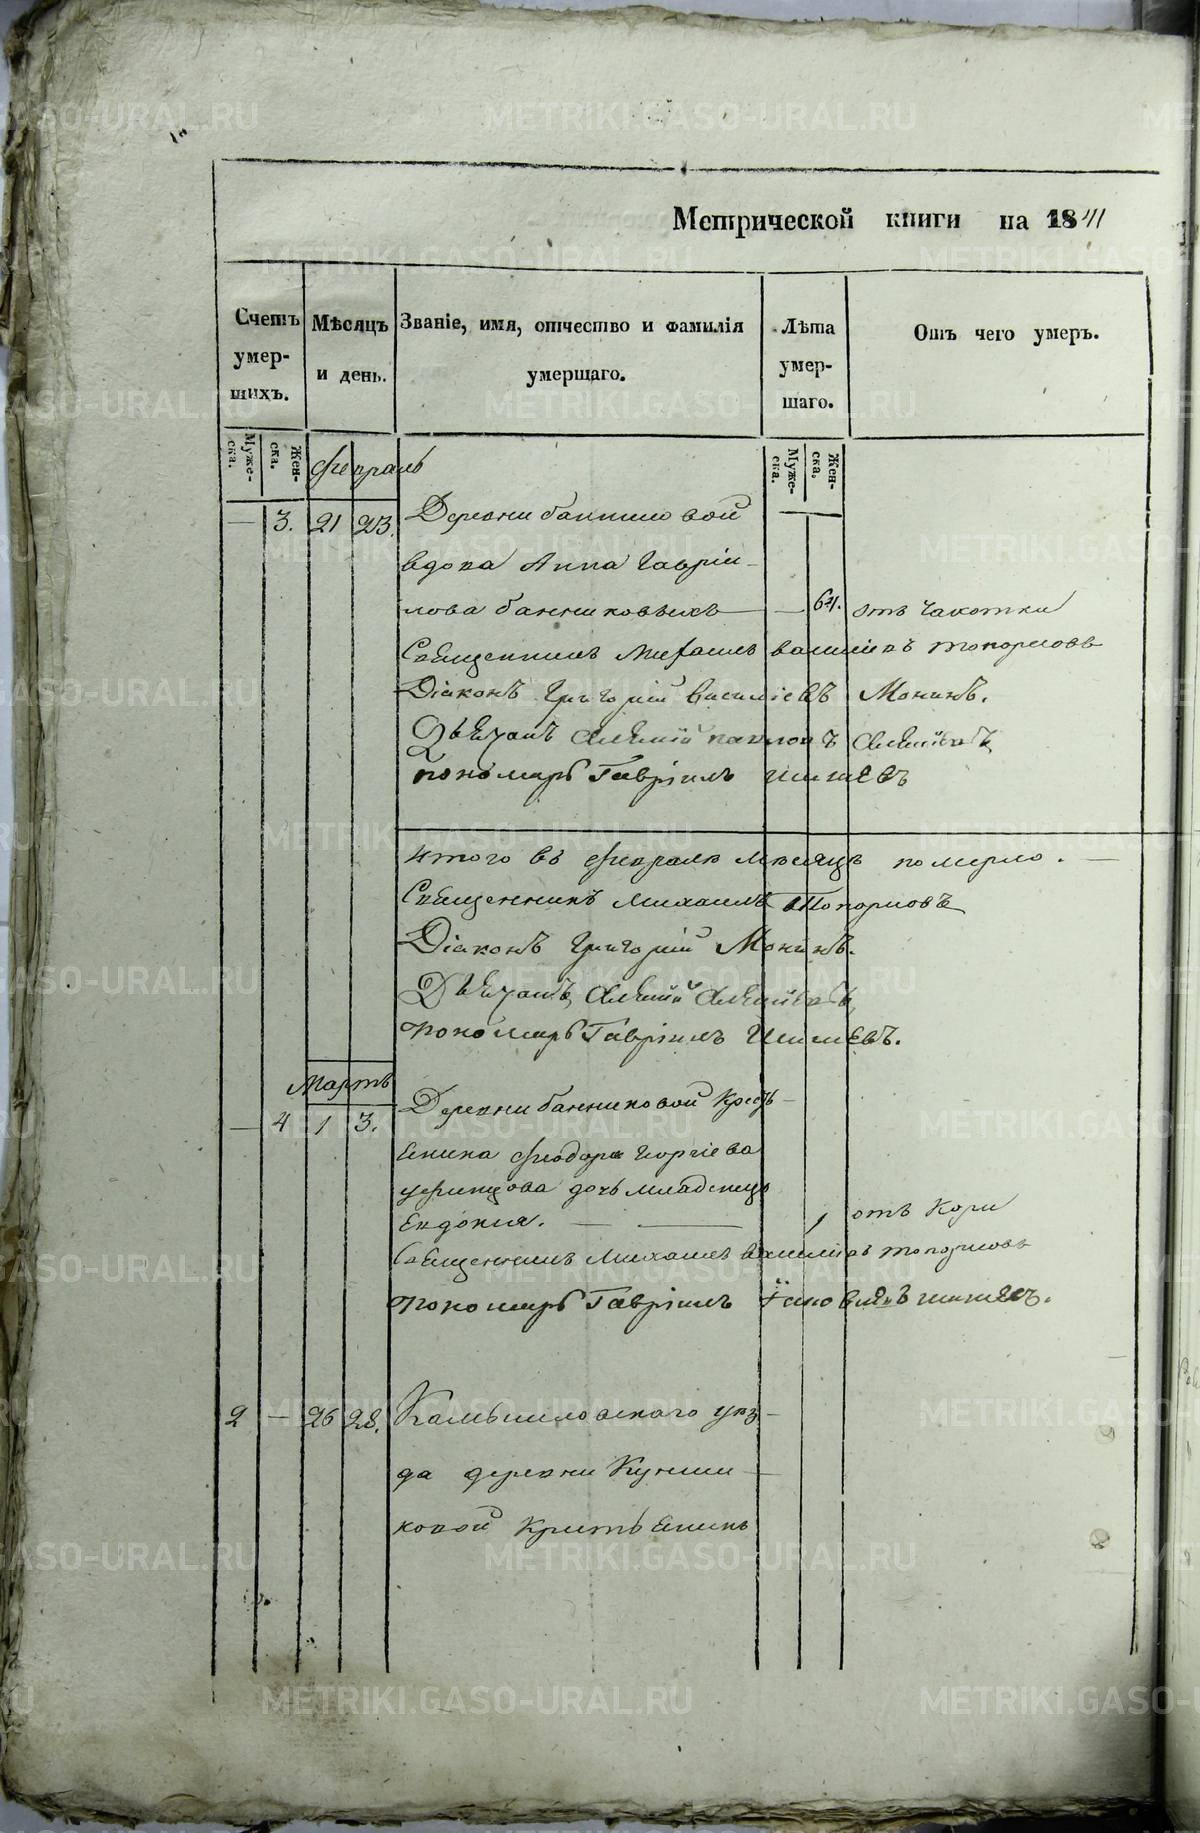 Метрической книги на 1841
Счетъ умер-шихъ.
Мѣсяцъ и день.
Званіе, имя, отчество и фамилія умершаго.
Лѣта умер-шаго.
Отъ чего умеръ.
Муже-ска.
Жен-ска.
Муже-ска.
Жен-ска.
Февраль
— 3. 21 23. Деревни банниковой
вдова Анна Гавріи-
лова банниковыхъ — — 64. отъ Чахотки
Священникъ Михаилъ василіевъ топорковъ
Діаконъ Григорій Василіевъ Монинъ.
Дьячокъ Алексѣй павловъ
пономарь Гавріилъ
Итого въ февралѣ мѣсяцѣ померло. —
Священникъ Михаилъ Топорковъ
Діаконъ Григорій Монинъ.
Дьячокъ Алексѣй
пономарь Гавріилъ
Мартъ
— 4 1 3. Деревни банниковой Кресть-
енина Феодора Георгіева
дочь младенецъ
Евдокія. — — 1 отъ Кори
Священникъ Михаилъ василіевъ топорковъ
пономарь Гавріилъ
2 — 26 28. Камышловскаго уѣз-
да деревни
Крестьенинъ
METRIKI.GASO-URAL.RU